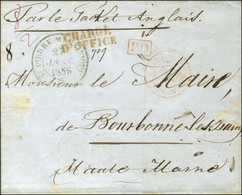 Par le Packet Anglais.
CHARGÉ
D'OFFICE
PD
1856
8.
Monsieur le Maire,
de Bourbonne les Bains
Haute Marne